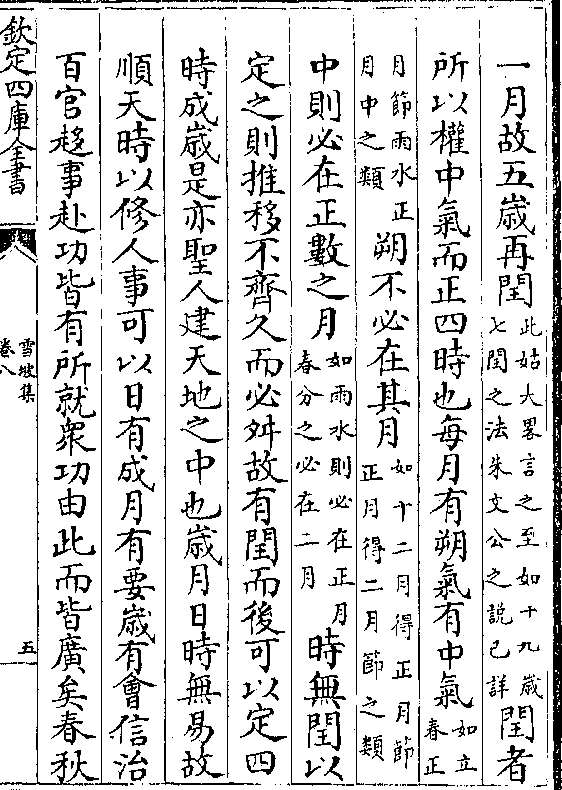 一月故五歲再閏此姑大畧言之至如十九歲七閏之法朱文公之說已詳閏者
所以權中氣而正四時也每月有朔氣有中氣如立春正
月節雨水正月中之類朔不必在其月如十二月得正月節正月得二月節之類
中則必在正數之月如雨水則必在正月春分之必在二月時無閏以
定之則推移不齊久而必舛故有閏而後可以定四
時成歲是亦聖人建天地之中也歲月日時無易故
順天時以修人事可以日有成月有要歲有會信治
百官趍事赴功皆有所就衆功由此而皆廣矣春秋
欽定四庫全書
雪坡集
卷八
五